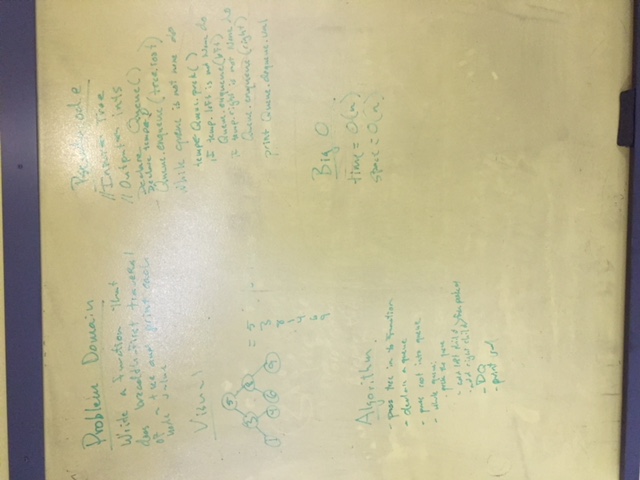 Problem Domain
Write a function that
does breadth-first traversal
of tree and print each
node's value.
Visual
5
3 8
1 4 6 9
= 5
3
8
1
4
6
9
Algorithm
- pass tree in to function
- declare a queue
- pass root into queue
- while queue:
- peek the queue
- add left child
- add right child
- DQ
- print val
Pseudocode
// Input Tree
// Output ints
Declare Queue()
Declare temp
Queue.enqueue(tree.root)
while queue is not none do
temp = Queue.peek()
if temp.left is not None do
Queue.enqueue(left)
if temp.right is not None do
Queue.enqueue(right)
print Queue.dequeue.val
Big O
time = O(n)
space = O(n)